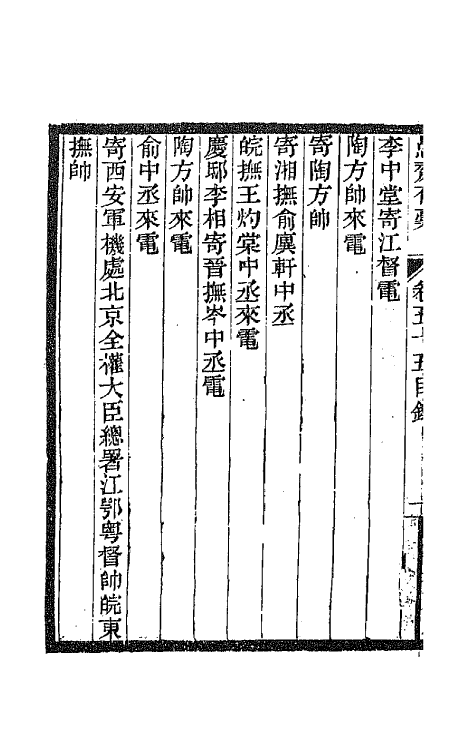 卷五十五目錄
李中堂寄江督電
陶方帥來電
寄陶方帥
寄湘撫俞廙軒中丞
皖撫王灼棠中丞來電
慶邸李相寄晉撫岑中丞電
陶方帥來電
俞中丞來電
寄西安軍機處北京全權大臣總署江鄂粤督帥皖東
撫帥